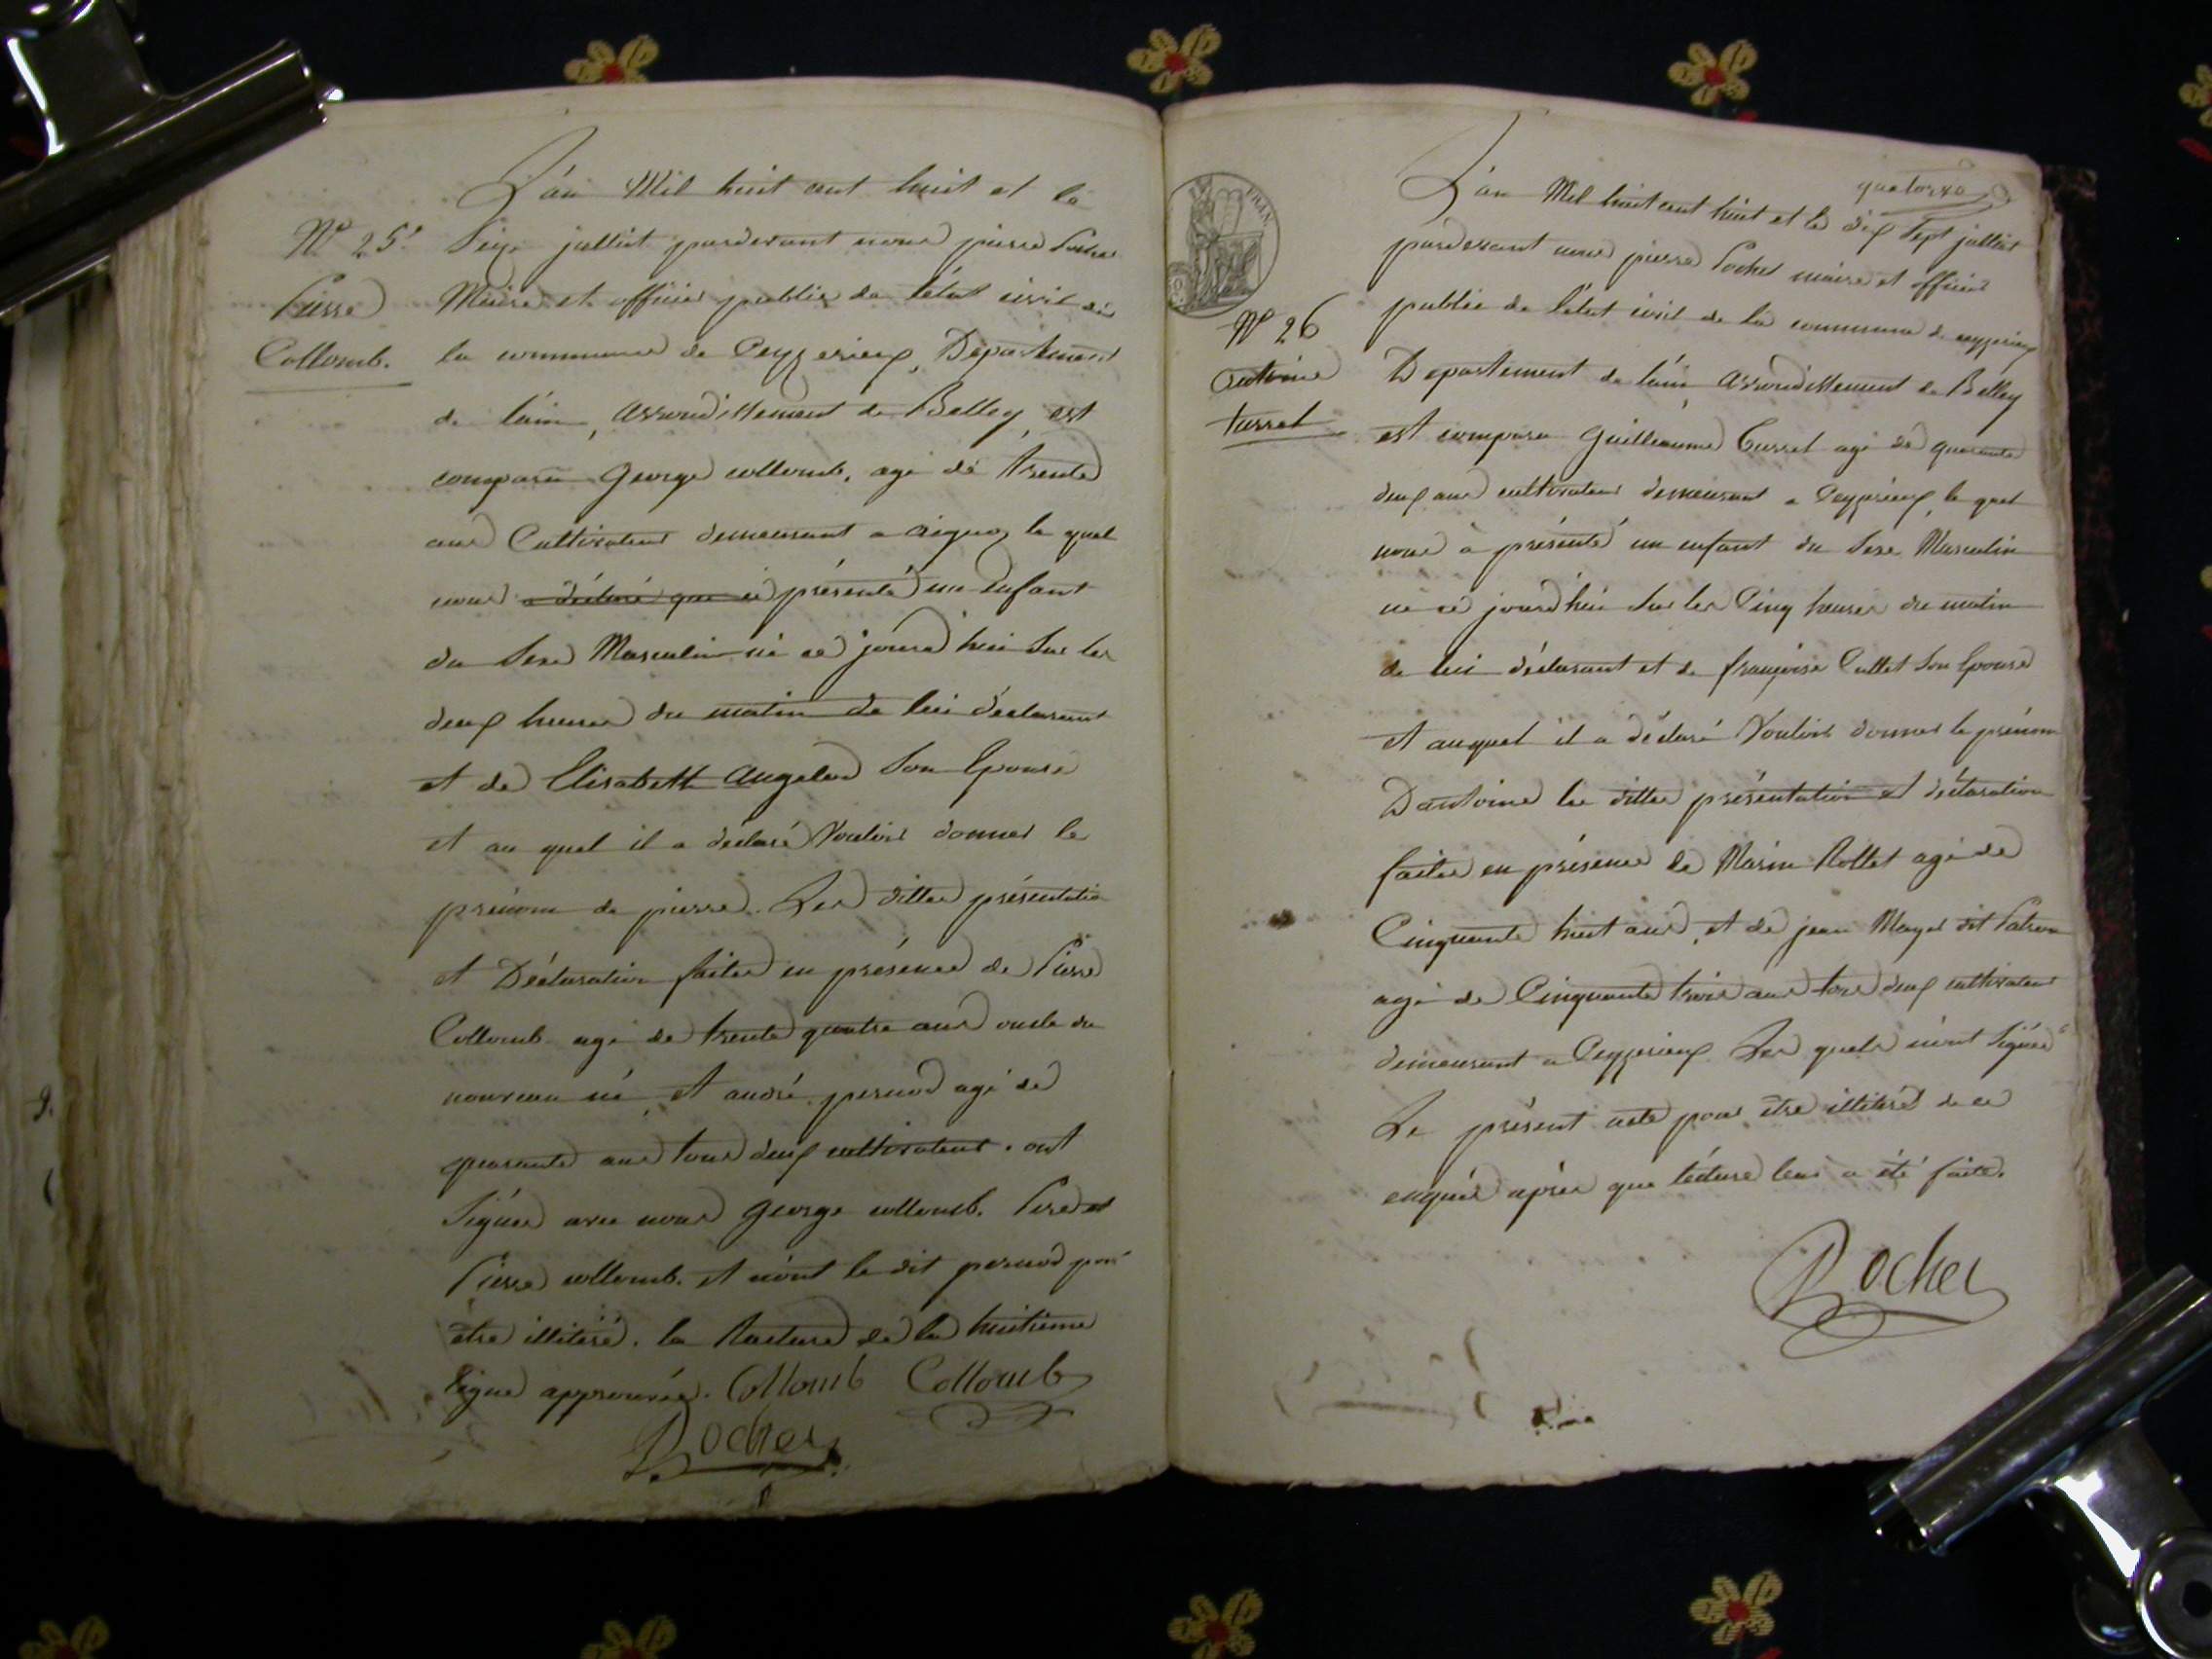 L'an Mil huit cent huit et le
N° 25. Seize juillet pardevant nous pierre Rocher
Pierre Maire et officier public de l'état civil de
Collomb. la commune de Ceyzerieux, Département
de l'ain, arrondissement de Belley, est
comparu George collomb, agé de trente
ans Cultivateur demeurant a aignoz le quel
nous a déclaré que a présenté un enfant
du Sexe Masculin né ce jourd'hui Sur les
deux heures du matin de lui déclarant
et de Elisabeth Angelier Son Epouse
et au quel il a déclaré Vouloir donner le
prénom de pierre. Les dittes présentation
et Déclaration faites en présence de Pierre
Collomb agé de trente quatre ans oncle du
nouveau né, et andré pernod agé de
quarante ans tous deux cultivateurs. ont
Signés avec nous George collomb. Pere et
Pierre collomb. et n'ont le dit pernod pour
être illitéré. la Rasture de la huitieme
ligne approuvée. Collomb Collomb
Rocher
quatorze
L'an Mil huit cent huit et le dix Sept juillet
pardevant nous pierre Rocher maire et officier
public de l'état civil de la commune de ceyzerieux
N° 26
antoine Département de l'ain, arrondissement de Belley
turrel est comparu Guilleaume Turrel agé de quarante
deux ans cultivateur demeurant a Ceyzerieux, le quel
nous à présenté un enfant du Sexe Masculin
né ce jourd'hui Sur les Cinq heures du matin
de lui déclarant et de françoise Cullet Son Epouse
et auquel il a déclaré Vouloir donner le prénom
D'antoine les dittes présentation et déclaration
faites en présence de Marin Rollet agé de
Cinquante huit ans, et de jean Mayet dit Patron
agé de Cinquante trois ans tous deux cultivateurs
demeurant a Ceyzerieux. Les quels n'ont Signés
Le présent acte pour être illitérés de ce
enquis après que lecture leur a été faite.
Rocher